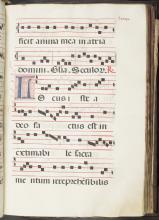 ficit anima mea in atria
domini. Glia. Seculor.
Locus iste a
deo fa ctus est in
extimabi le sacra
me ntum irreprehesibilis